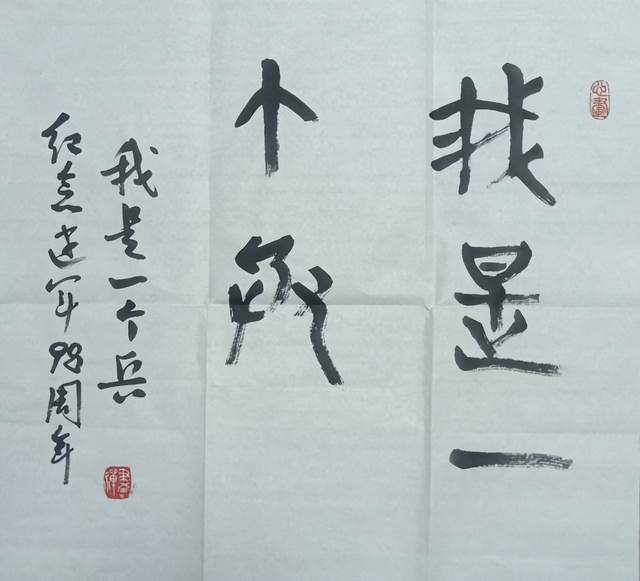 我是一
个兵
我是一个兵
纪念建军98周年